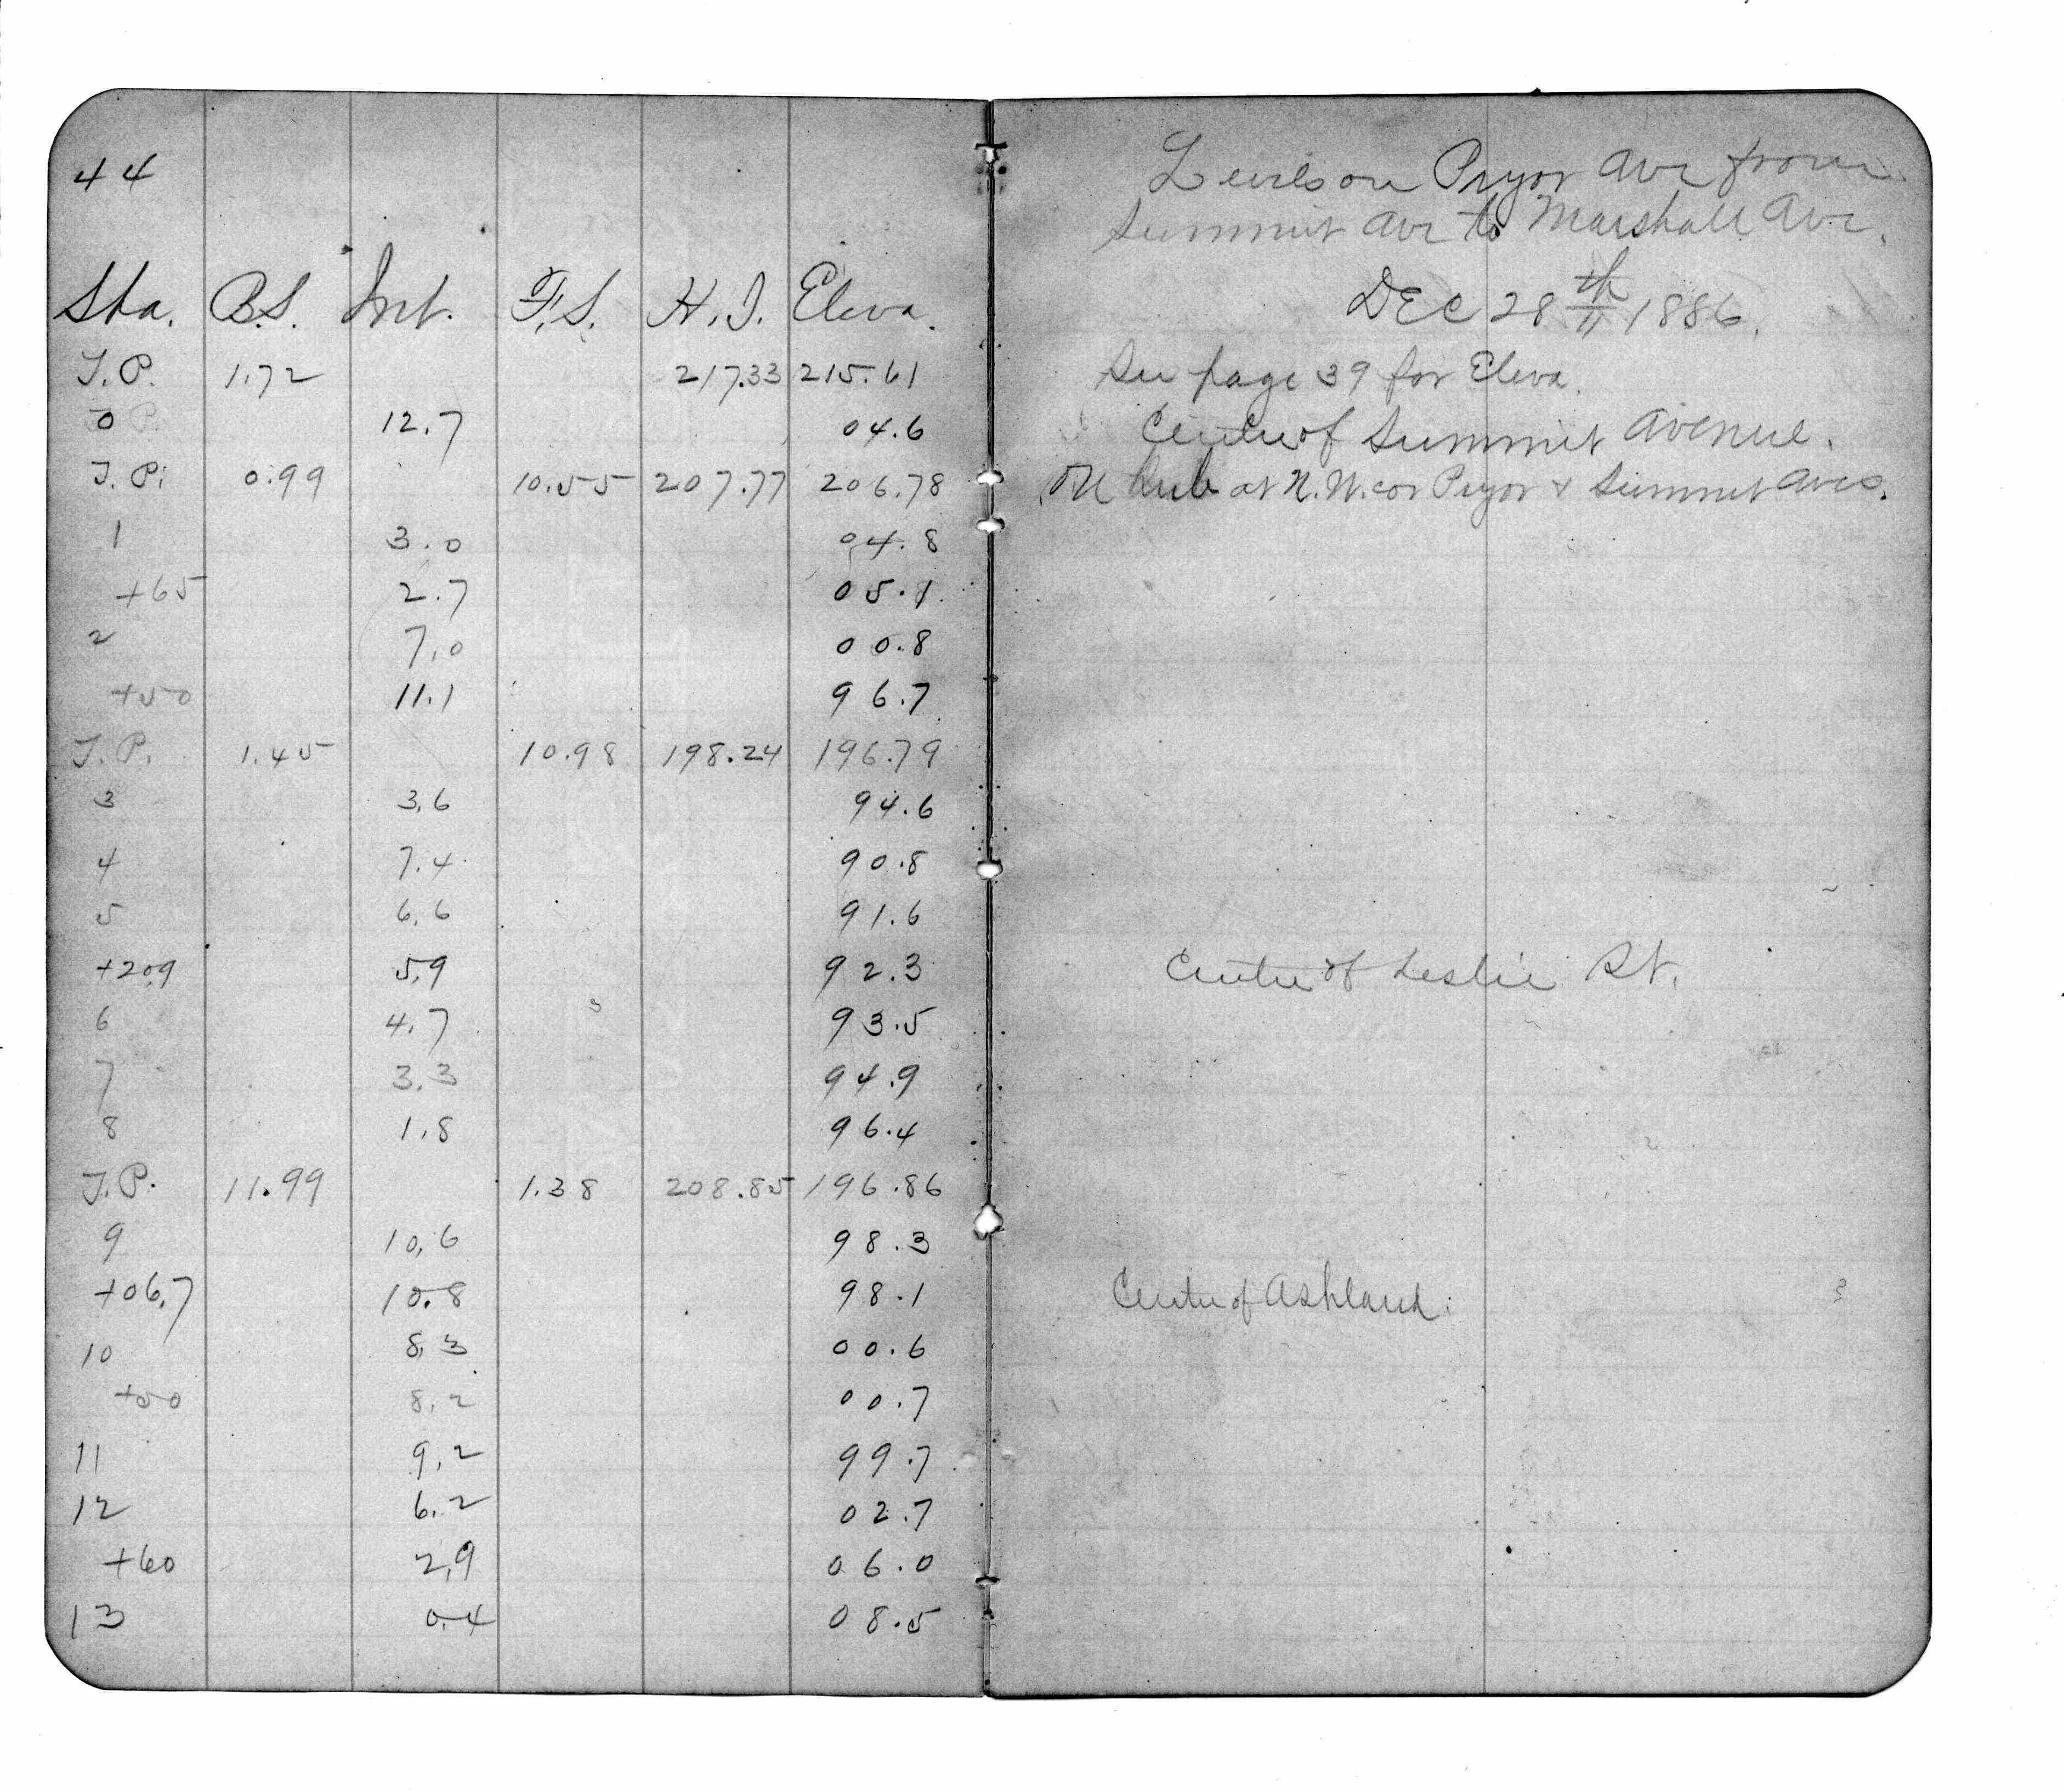 44
Sta. B.S. Int. F.S. H.I. Eleva.
T.P. 1.72 217.33 215.61
0 12.7 04.6
T.P. 0.99 10.55 207.77 206.78
1 3.0 04.8
+65 2.7 05.1
2 7.0 00.8
+50 11.1 96.7
T.P. 1.45 10.98 198.24 196.79
3 3.6 94.6
4 7.4 90.8
5 6.6 91.6
+20.9 5.9 92.3
6 4.7 93.5
7 3.3 94.9
8 1.8 96.4
T.P. 11.99 1.38 208.85 196.86
9 10.6 98.3
+06.7 10.8 98.1
10 8.3 00.6
+50 8.2 00.7
11 9.2 99.7
12 6.2 02.7
+60 2.9 06.0
13 0.4 08.5
Levels on Pryor Ave from
Summit Ave to Marshall Ave.
DEC 28th 1886.
See page 39 for Eleva.
Centre of Summit Avenue.
On hub at N.W. cor Pryor & Summit Aves.
Centre of Leslie St.
Centre of Ashland.